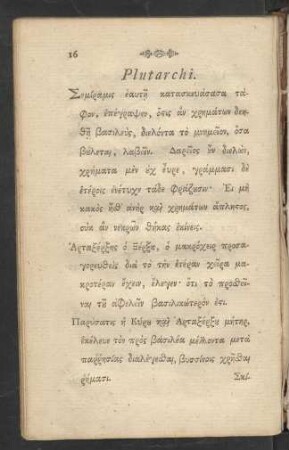 16
Plutarchi.
Σεμίραμις ἑαυτῇ κατασκευάσασα τά-
φον, ἐπέγραψεν, ὅςις ἂν χρημάτων δεη-
θῇ βασιλεὺς, διελόντα τὸ μνημεῖον, ὅσα
βούλεται, λαβεῖν. Δαρεῖος ἦν διελὼν,
χρήματα μὲν οὐχ εὗρε, γράμμασι δὲ
ἑτέροις ἐνέτυχε τάδε Φράζεσιν· Εἰ μὴ
κακὸς ἦσθ' ἀνὴρ καὶ χρημάτων ἄπληςος,
οὐκ ἂν νεκρῶν θήκας ἐκίνεις.
Ἀρταξέρξης ὁ Ξέρξε, ὁ μακρόχειρ προσα-
γορευθεὶς διὰ τὸ τὴν ἑτέραν χεῖρα μα-
κροτέραν ἔχειν, ἔλεγεν· ὅτι τὸ προσθεῖ-
ναι τῦ ἀφελεῖν βασιλικώτερόν ἐςι.
Παρύσατις ἡ Κύρου καὶ Ἀρταξέρξε μήτηρ,
ἐκέλευε τὸν πρὸς βασιλέα μέλλοντα μετὰ
παῤῥησίας διαλέγεσθαι, βυσσίνοις χρῆσθαι
ῥήμασι.
Σκί-